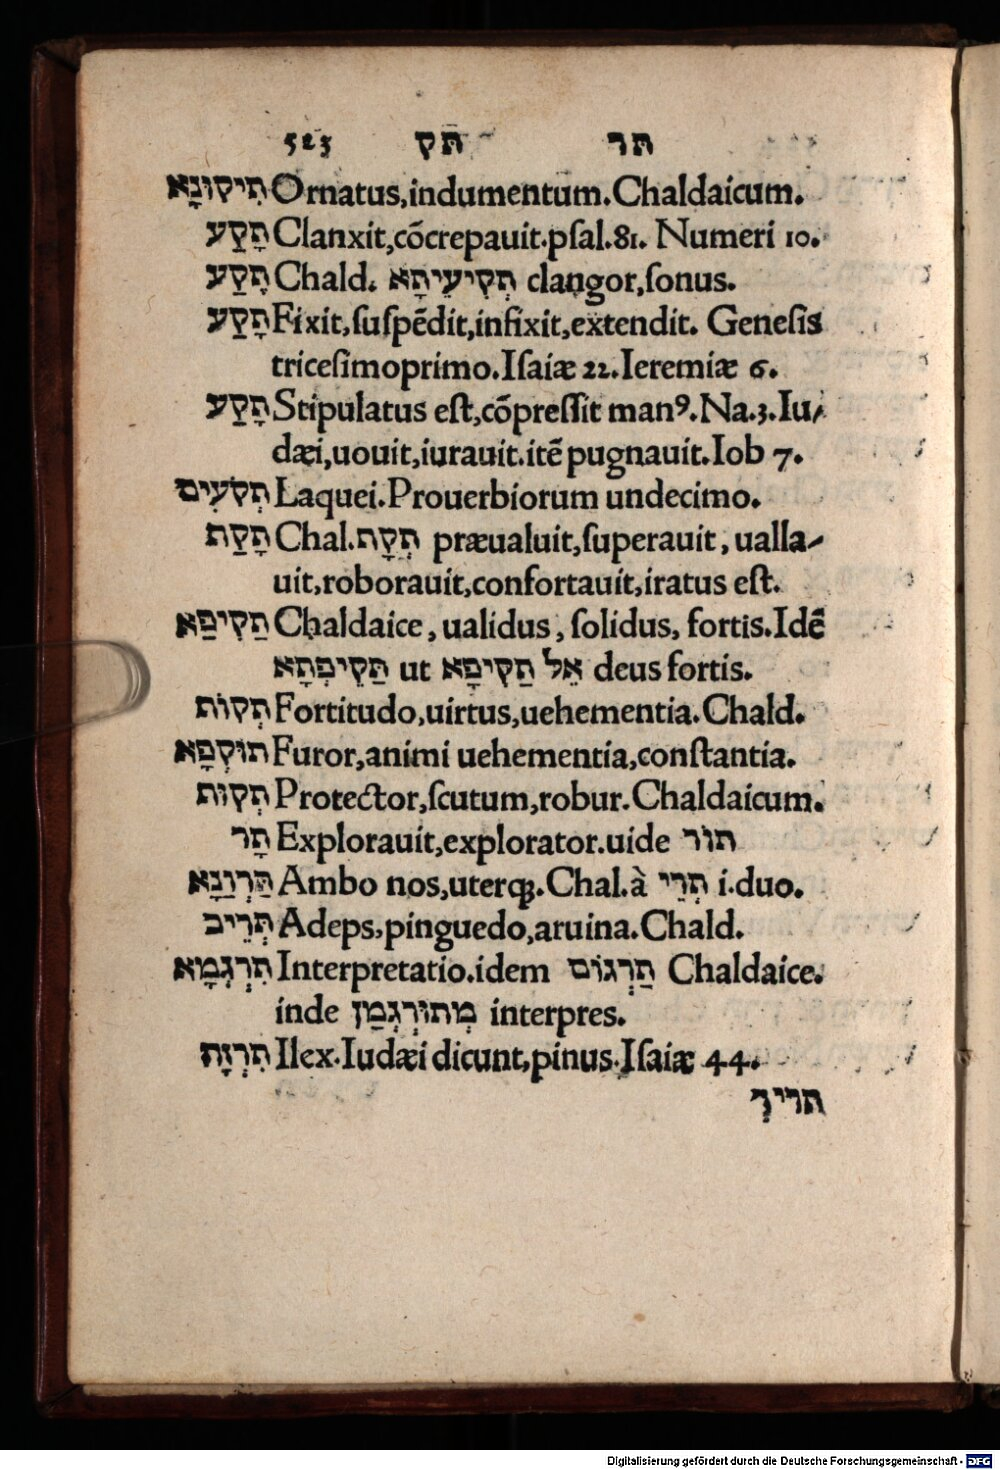 523 תק תר
תִיקוּנָא Ornatus,indumentum.Chaldaicum.
תָקַע Clanxit,cõcrepauit.pſal.81. Numeri 10.
תְקַע Chald. תְקִיעֵיתָא clangor,ſonus.
תָקַע Fixit,ſuſpẽdit,infixit,extendit. Geneſis
triceſimoprimo.Iſaiæ 22.Ieremiæ 6.
תָקַע Stipulatus eſt,cõpreſſit manꝰ.Na.3.Iu⸗
dæi,uouit,iurauit.itẽ pugnauit.Iob 7.
תְקֹעִים Laquei.Prouerbiorum undecimo.
תָקַת Chal.תְקָת præualuit,ſuperauit, ualla⸗
uit,roborauit,confortauit,iratus eſt.
תַקִיפַא Chaldaice, ualidus, ſolidus, fortis.Idẽ
תַקֵיפְתָא ut אֵל תַקִיפָא deus fortis.
תְקוֹת Fortitudo,uirtus,uehementia.Chald.
תוֹקְפָא Furor,animi uehementia,conſtantia.
תְקוּת Protector,ſcutum,robur.Chaldaicum.
תָר Explorauit,explorator.uide תוֹר
תַּרְוַנָא Ambo nos,uterqꝫ.Chal.à תְרֵי i.duo.
תְּרֵיב Adeps,pinguedo,aruina.Chald.
תִרְגְמָא Interpretatio.idem תַרְגוּם Chaldaice.
inde מְתוּרְגְמַן interpres.
תִרְזָה Ilex.Iudæi dicunt,pinus.Iſaiæ 44.
תריך
Digitalisierung gefördert durch die Deutsche Forschungsgemeinschaft - DFG